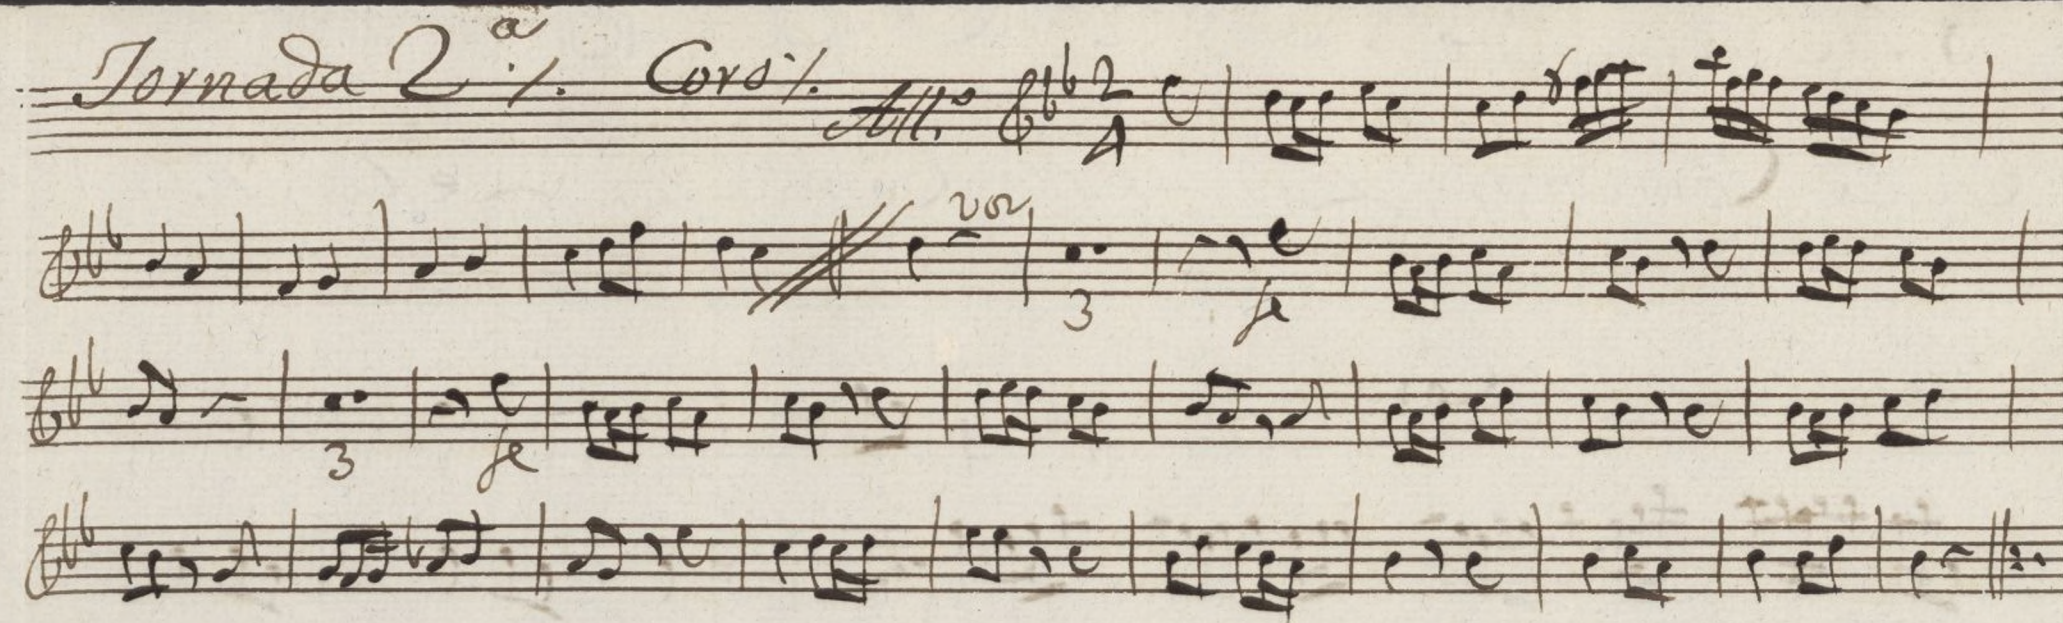 Jornada 2.a ·/. Coro ·/. All.o 2/4
voz
3 fe
3 fe